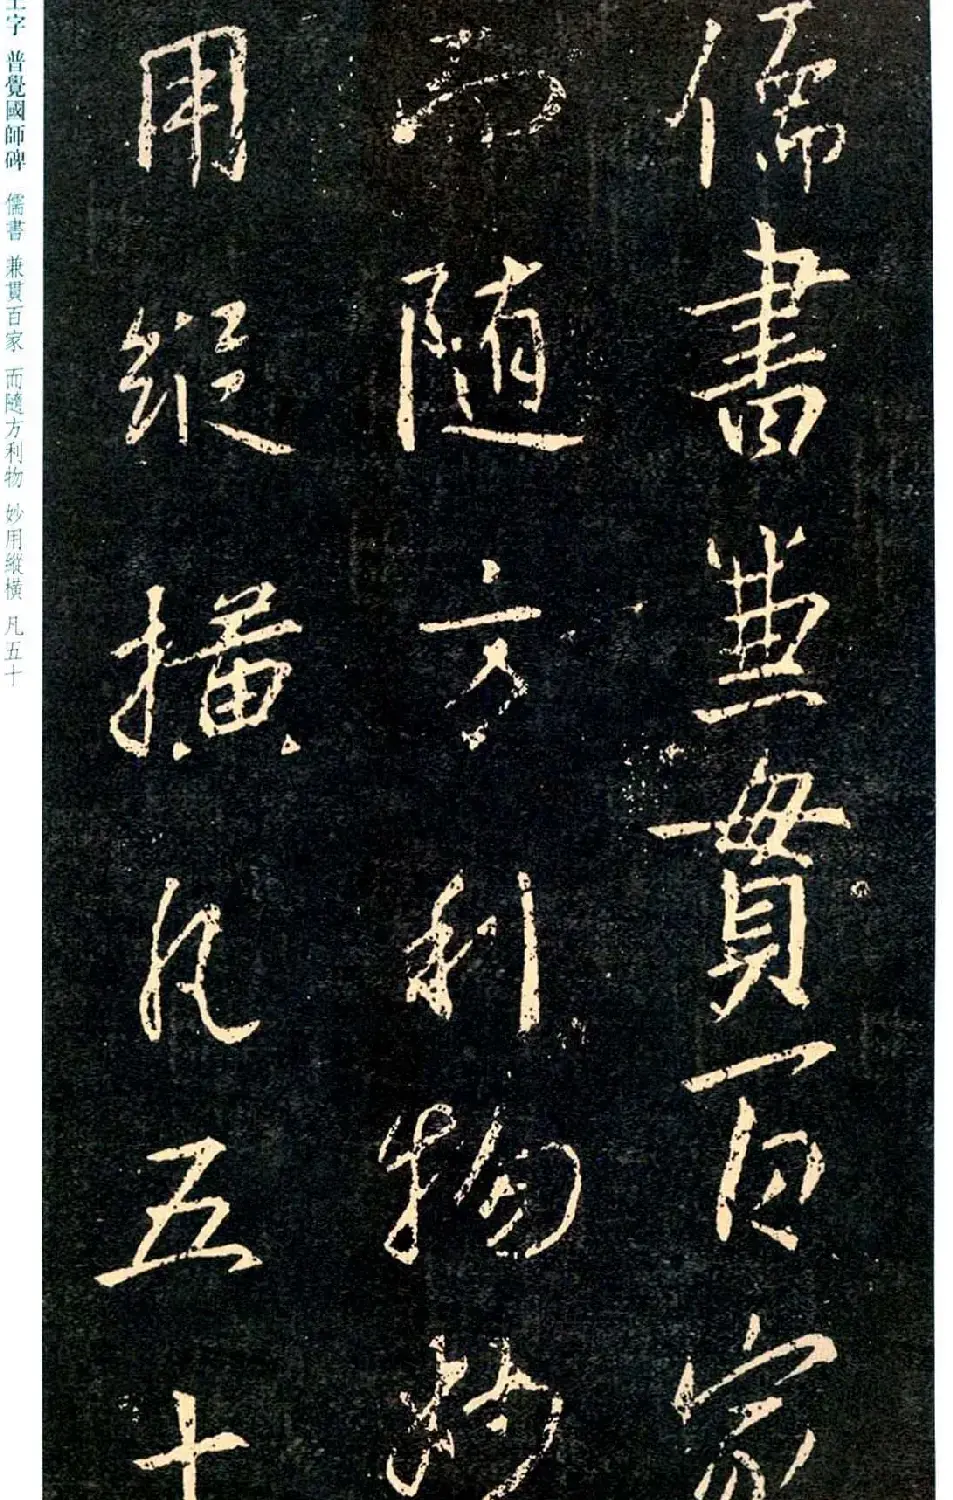 儒書兼貫百家
而隨方利物妙
用縱橫凡五十
王字 普覺國師碑 儒書 兼貫百家 而隨方利物 妙用縱橫 凡五十